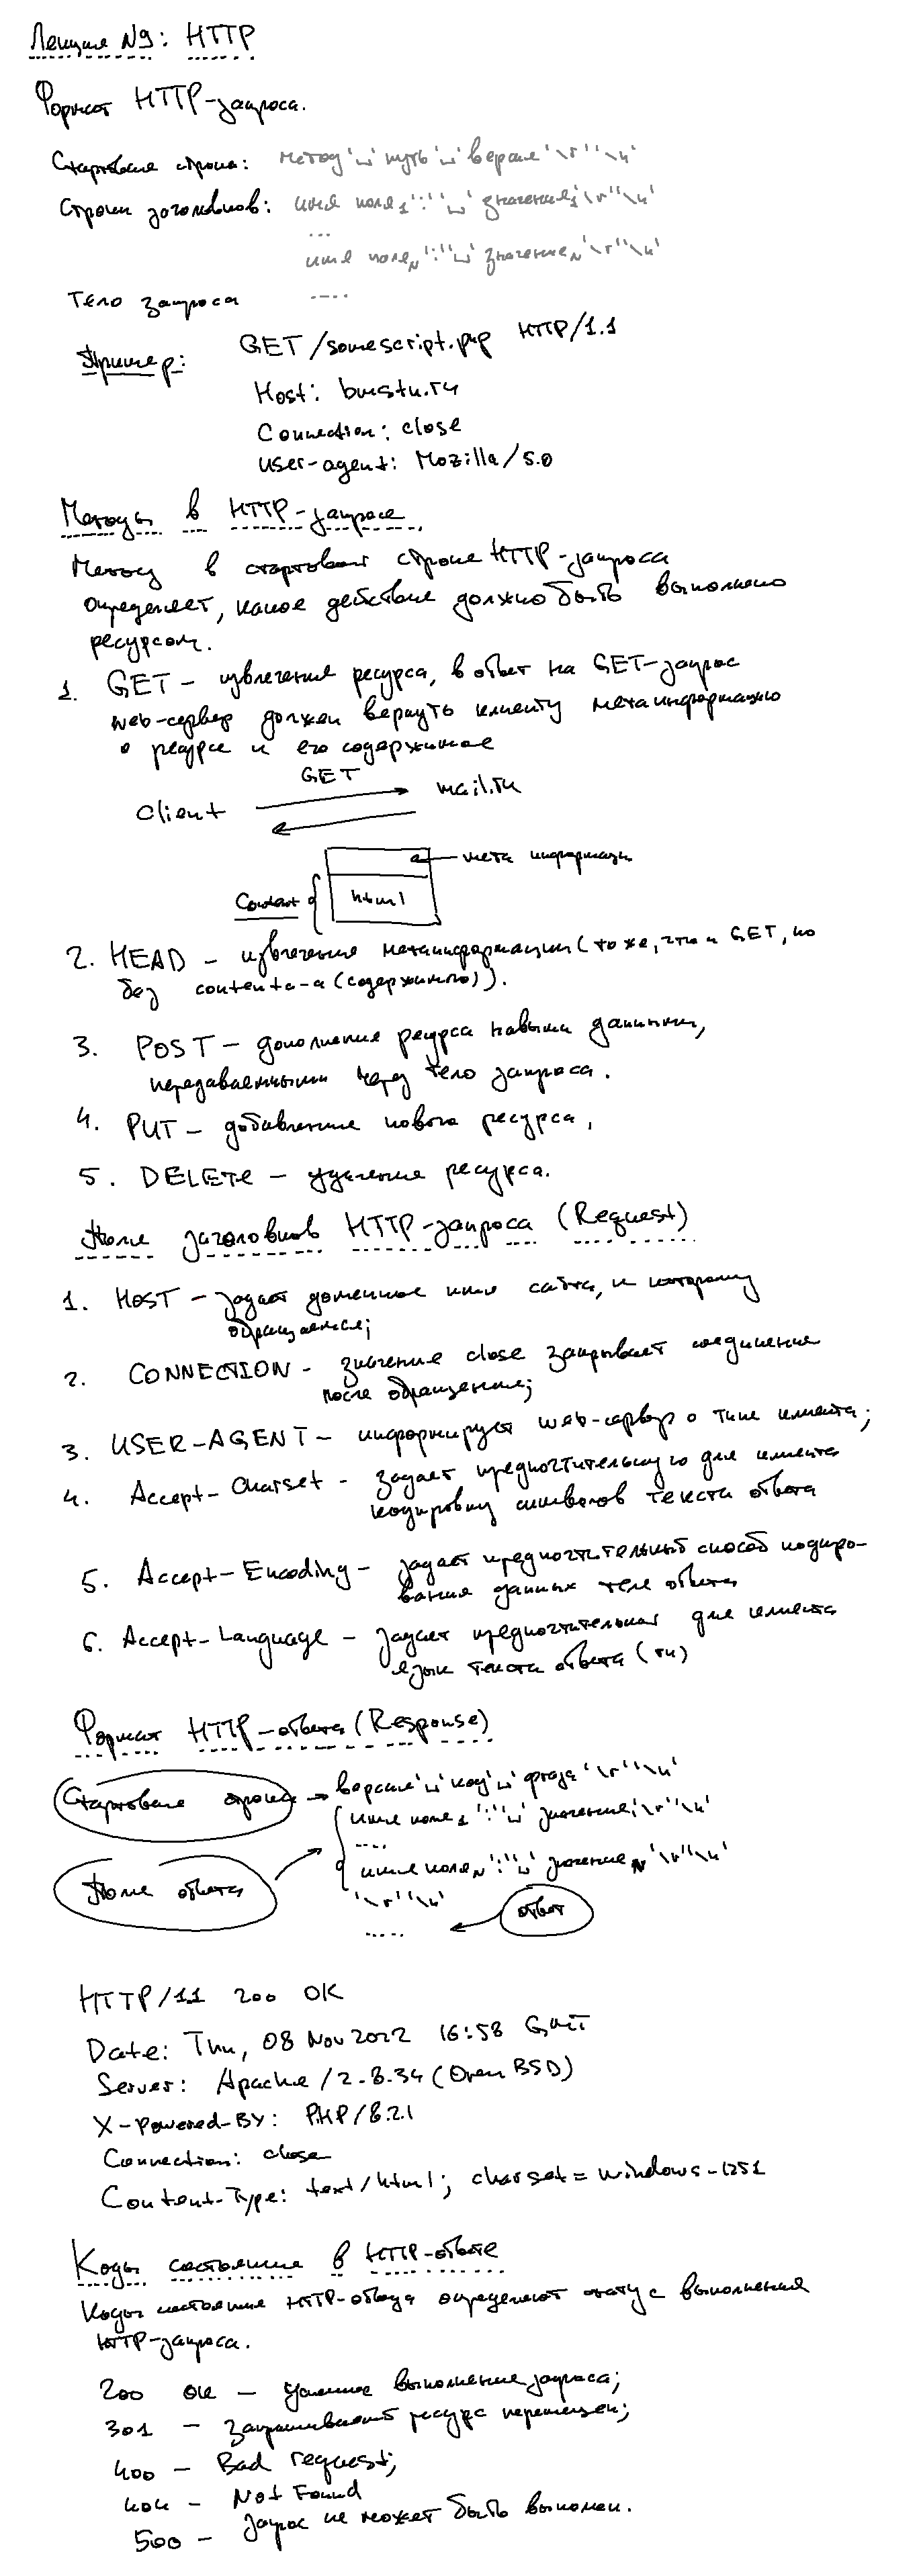 Лекция №9: HTTP
Формат HTTP-запроса.
Стартовая строка: метод'␣'путь'␣'версия'\r''\n'
Строки заголовков: имя поля₁':''␣'значение₁'\r''\n'
...
имя поля_N':''␣'значение_N'\r''\n'
Тело запроса .....
Пример: GET /somescript.php HTTP/1.1
Host: bmstu.ru
Connection: close
User-agent: Mozilla/5.0
Методы в HTTP-запросе.
Метод в стартовой строке HTTP-запроса
определяет, какое действие должно быть выполнено
ресурсом.
1. GET - извлечение ресурса, в ответ на GET-запрос
web-сервер должен вернуть клиенту метаинформацию
о ресурсе и его содержимое
GET
Client mail.ru
мета информация
Content html
2. HEAD - извлечение метаинформации (то же, что и GET, но
без contenta-а (содержимого)).
3. POST - дополнение ресурса новыми данными,
передаваемыми через тело запроса.
4. PUT - добавление нового ресурса.
5. DELETE - удаление ресурса.
Поля заголовков HTTP-запроса (Request)
1. HOST - задает доменное имя сайта, к которому
обращаемся;
2. CONNECTION - значение close закрывает соединение
после обращения;
3. USER-AGENT - информирует web-сервер о типе клиента;
4. Accept-Charset - задает предпочтительную для клиента
кодировку символов текста ответа
5. Accept-Encoding - задает предпочтительный способ кодиро-
вания данных тела ответа
6. Accept-Language - задает предпочтительный для клиента
язык текста ответа (ru)
Формат HTTP-ответа (Response)
Стартовая строка → версия'␣'код'␣'фраза'\r''\n'
имя поля₁':''␣'значение₁'\r''\n'
....
имя поля_N':''␣'значение_N'\r''\n'
Поля ответа
'\r''\n'
ответ
.....
HTTP/1.1 200 OK
Date: Thu, 08 Nov 2022 16:58 GMT
Server: Apache/2.8.34 (OpenBSD)
X-Powered-BY: PHP/8.2.1
Connection: close
Content-Type: text/html; charset=windows-1251
Коды состояния в HTTP-ответе
Коды состояния HTTP-ответа определяют статус выполнения
HTTP-запроса.
200 ok - успешное выполнение запроса;
301 - Запрашиваемый ресурс перемещен;
400 - Bad request;
404 - Not Found
500 - Запрос не может быть выполнен.